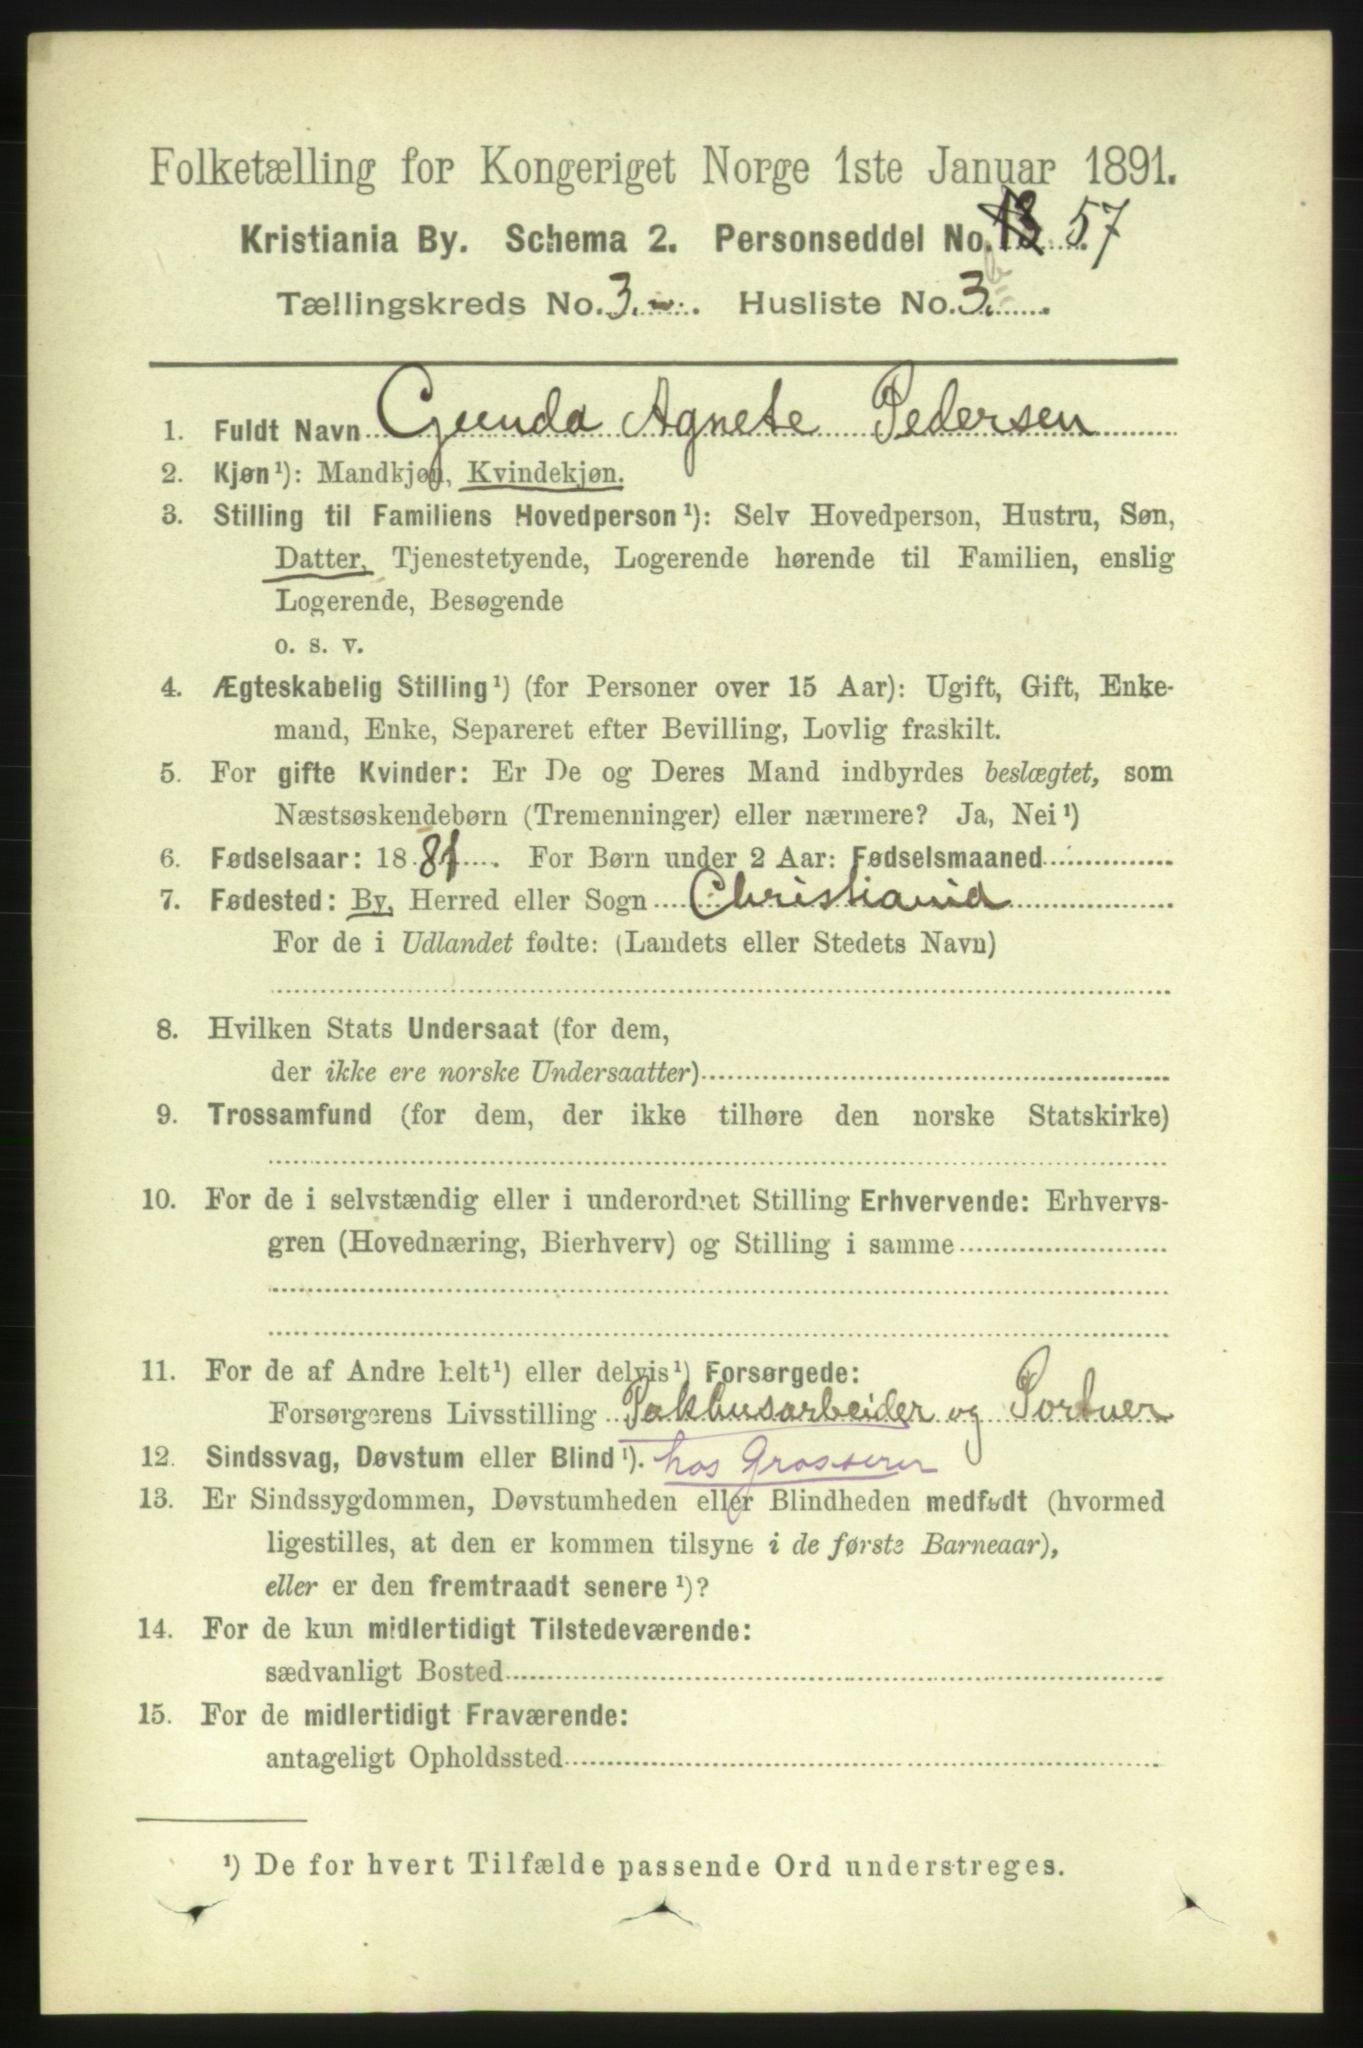 Folketælling for Kongeriget Norge 1ste Januar 1891.
Kristiania By. Schema 2. Personseddel No. 13 57
Tællingskreds No. 3. Husliste No. 3.b
1. Fuldt Navn Gunda Agnete Pedersen
2. Kjøn¹): Mandkjøn, Kvindekjøn.
3. Stilling til Familiens Hovedperson¹): Selv Hovedperson, Hustru, Søn,
Datter, Tjenestetyende, Logerende hørende til Familien, enslig
Logerende, Besøgende
o. s. v.
4. Ægteskabelig Stilling¹) (for Personer over 15 Aar): Ugift, Gift, Enke-
mand, Enke, Separeret efter Bevilling, Lovlig fraskilt.
5. For gifte Kvinder: Er De og Deres Mand indbyrdes beslægtet, som
Næstsøskendebørn (Tremenninger) eller nærmere? Ja, Nei¹)
6. Fødselsaar: 1881. For Børn under 2 Aar: Fødselsmaaned
7. Fødested: By, Herred eller Sogn Christiania
For de i Udlandet fødte: (Landets eller Stedets Navn)
8. Hvilken Stats Undersaat (for dem,
der ikke ere norske Undersaatter)
9. Trossamfund (for dem, der ikke tilhøre den norske Statskirke)
10. For de i selvstændig eller i underordnet Stilling Erhvervende: Erhvervs-
gren (Hovednæring, Bierhverv) og Stilling i samme
11. For de af Andre helt¹) eller delvis¹) Forsørgede:
Forsørgerens Livsstilling Pakhusarbeider og Portner
12. Sindssvag, Døvstum eller Blind¹). hos Grosserer
13. Er Sindssygdommen, Døvstumheden eller Blindheden medfødt (hvormed
ligestilles, at den er kommen tilsyne i de første Barneaar),
eller er den fremtraadt senere¹)?
14. For de kun midlertidigt Tilstedeværende:
sædvanligt Bosted
15. For de midlertidigt Fraværende:
antageligt Opholdssted
¹) De for hvert Tilfælde passende Ord understreges.